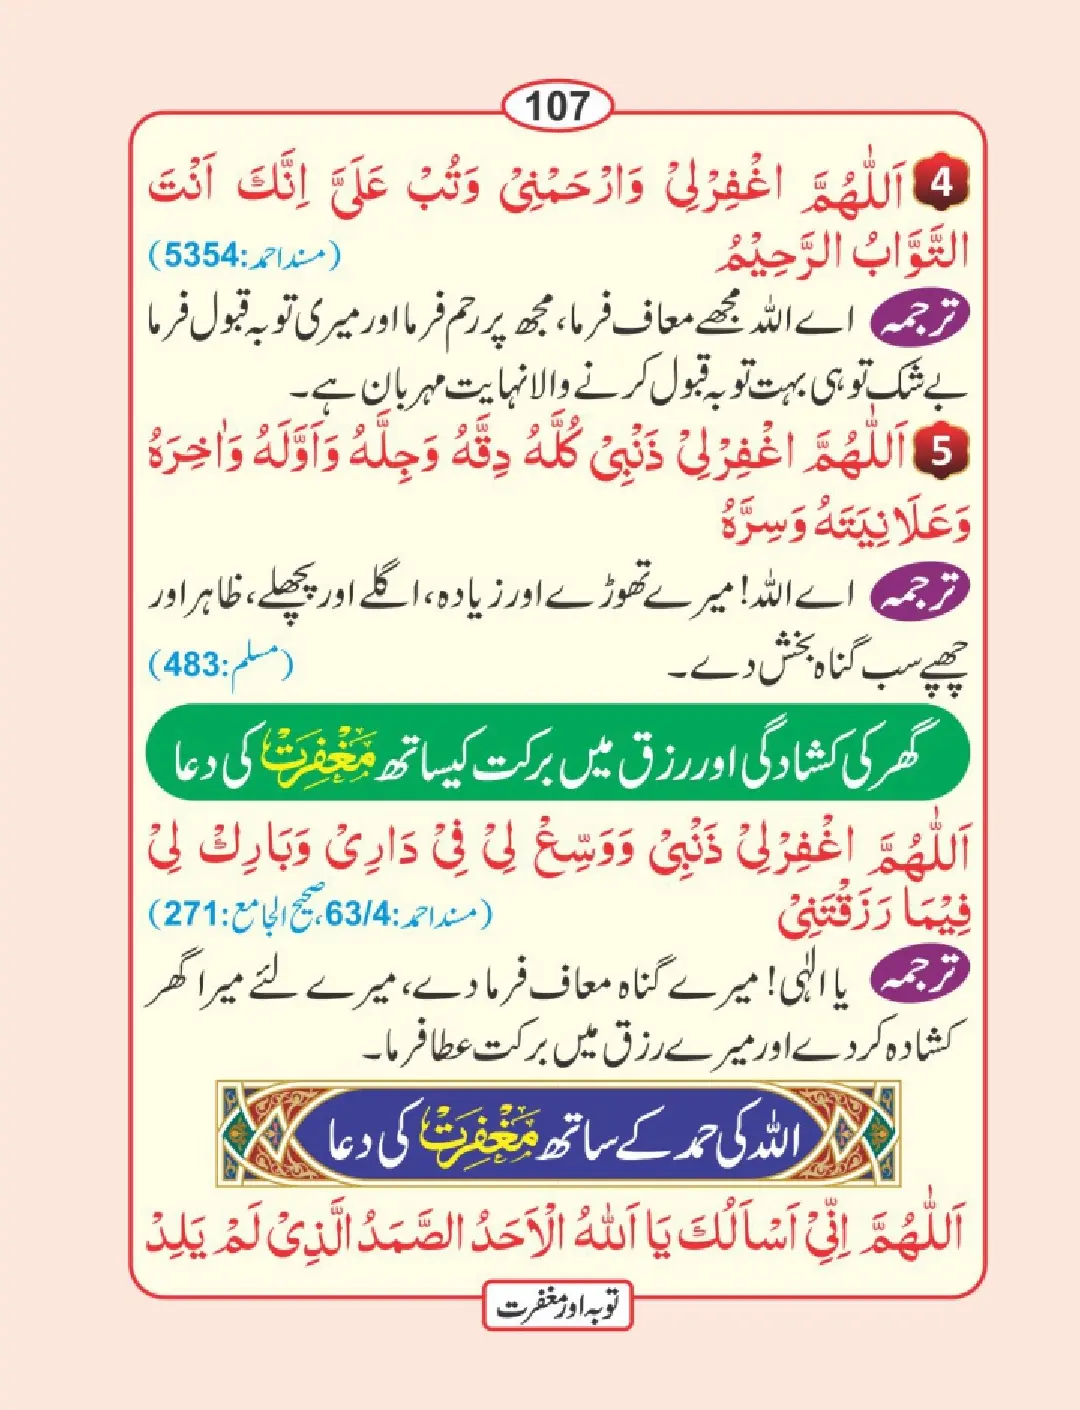 107
4 اَللّٰهُمَّ اغْفِرْلِیْ وَارْحَمْنِیْ وَتُبْ عَلَیَّ اِنَّكَ اَنْتَ
التَّوَّابُ الرَّحِیْمُ (مسند احمد:5354)
ترجمہ اے اللہ مجھے معاف فرما، مجھ پر رحم فرما اور میری توبہ قبول فرما
بے شک تو ہی بہت توبہ قبول کرنے والا نہایت مہربان ہے۔
5 اَللّٰهُمَّ اغْفِرْلِیْ ذَنْبِیْ كُلَّهُ دِقَّهُ وَجِلَّهُ وَاَوَّلَهُ وَاٰخِرَهُ
وَعَلَانِیَتَهُ وَسِرَّهُ
ترجمہ اے اللہ! میرے تھوڑے اور زیادہ، اگلے اور پچھلے، ظاہر اور
چھپے سب گناہ بخش دے۔ (مسلم:483)
گھر کی کشادگی اور رزق میں برکت کیساتھ مَغْفِرَتْ کی دعا
اَللّٰهُمَّ اغْفِرْلِیْ ذَنْبِیْ وَوَسِّعْ لِیْ فِیْ دَارِیْ وَبَارِكْ لِیْ
فِیْمَا رَزَقْتَنِیْ (مسند احمد:63/4، صحیح الجامع:271)
ترجمہ یا الٰہی! میرے گناہ معاف فرما دے، میرے لئے میرا گھر
کشادہ کر دے اور میرے رزق میں برکت عطا فرما۔
اللہ کی حمد کے ساتھ مَغْفِرَتْ کی دعا
اَللّٰهُمَّ اِنِّیْ اَسْاَلُكَ یَا اَللّٰهُ الْاَحَدُ الصَّمَدُ الَّذِیْ لَمْ یَلِدْ
توبہ اور مغفرت